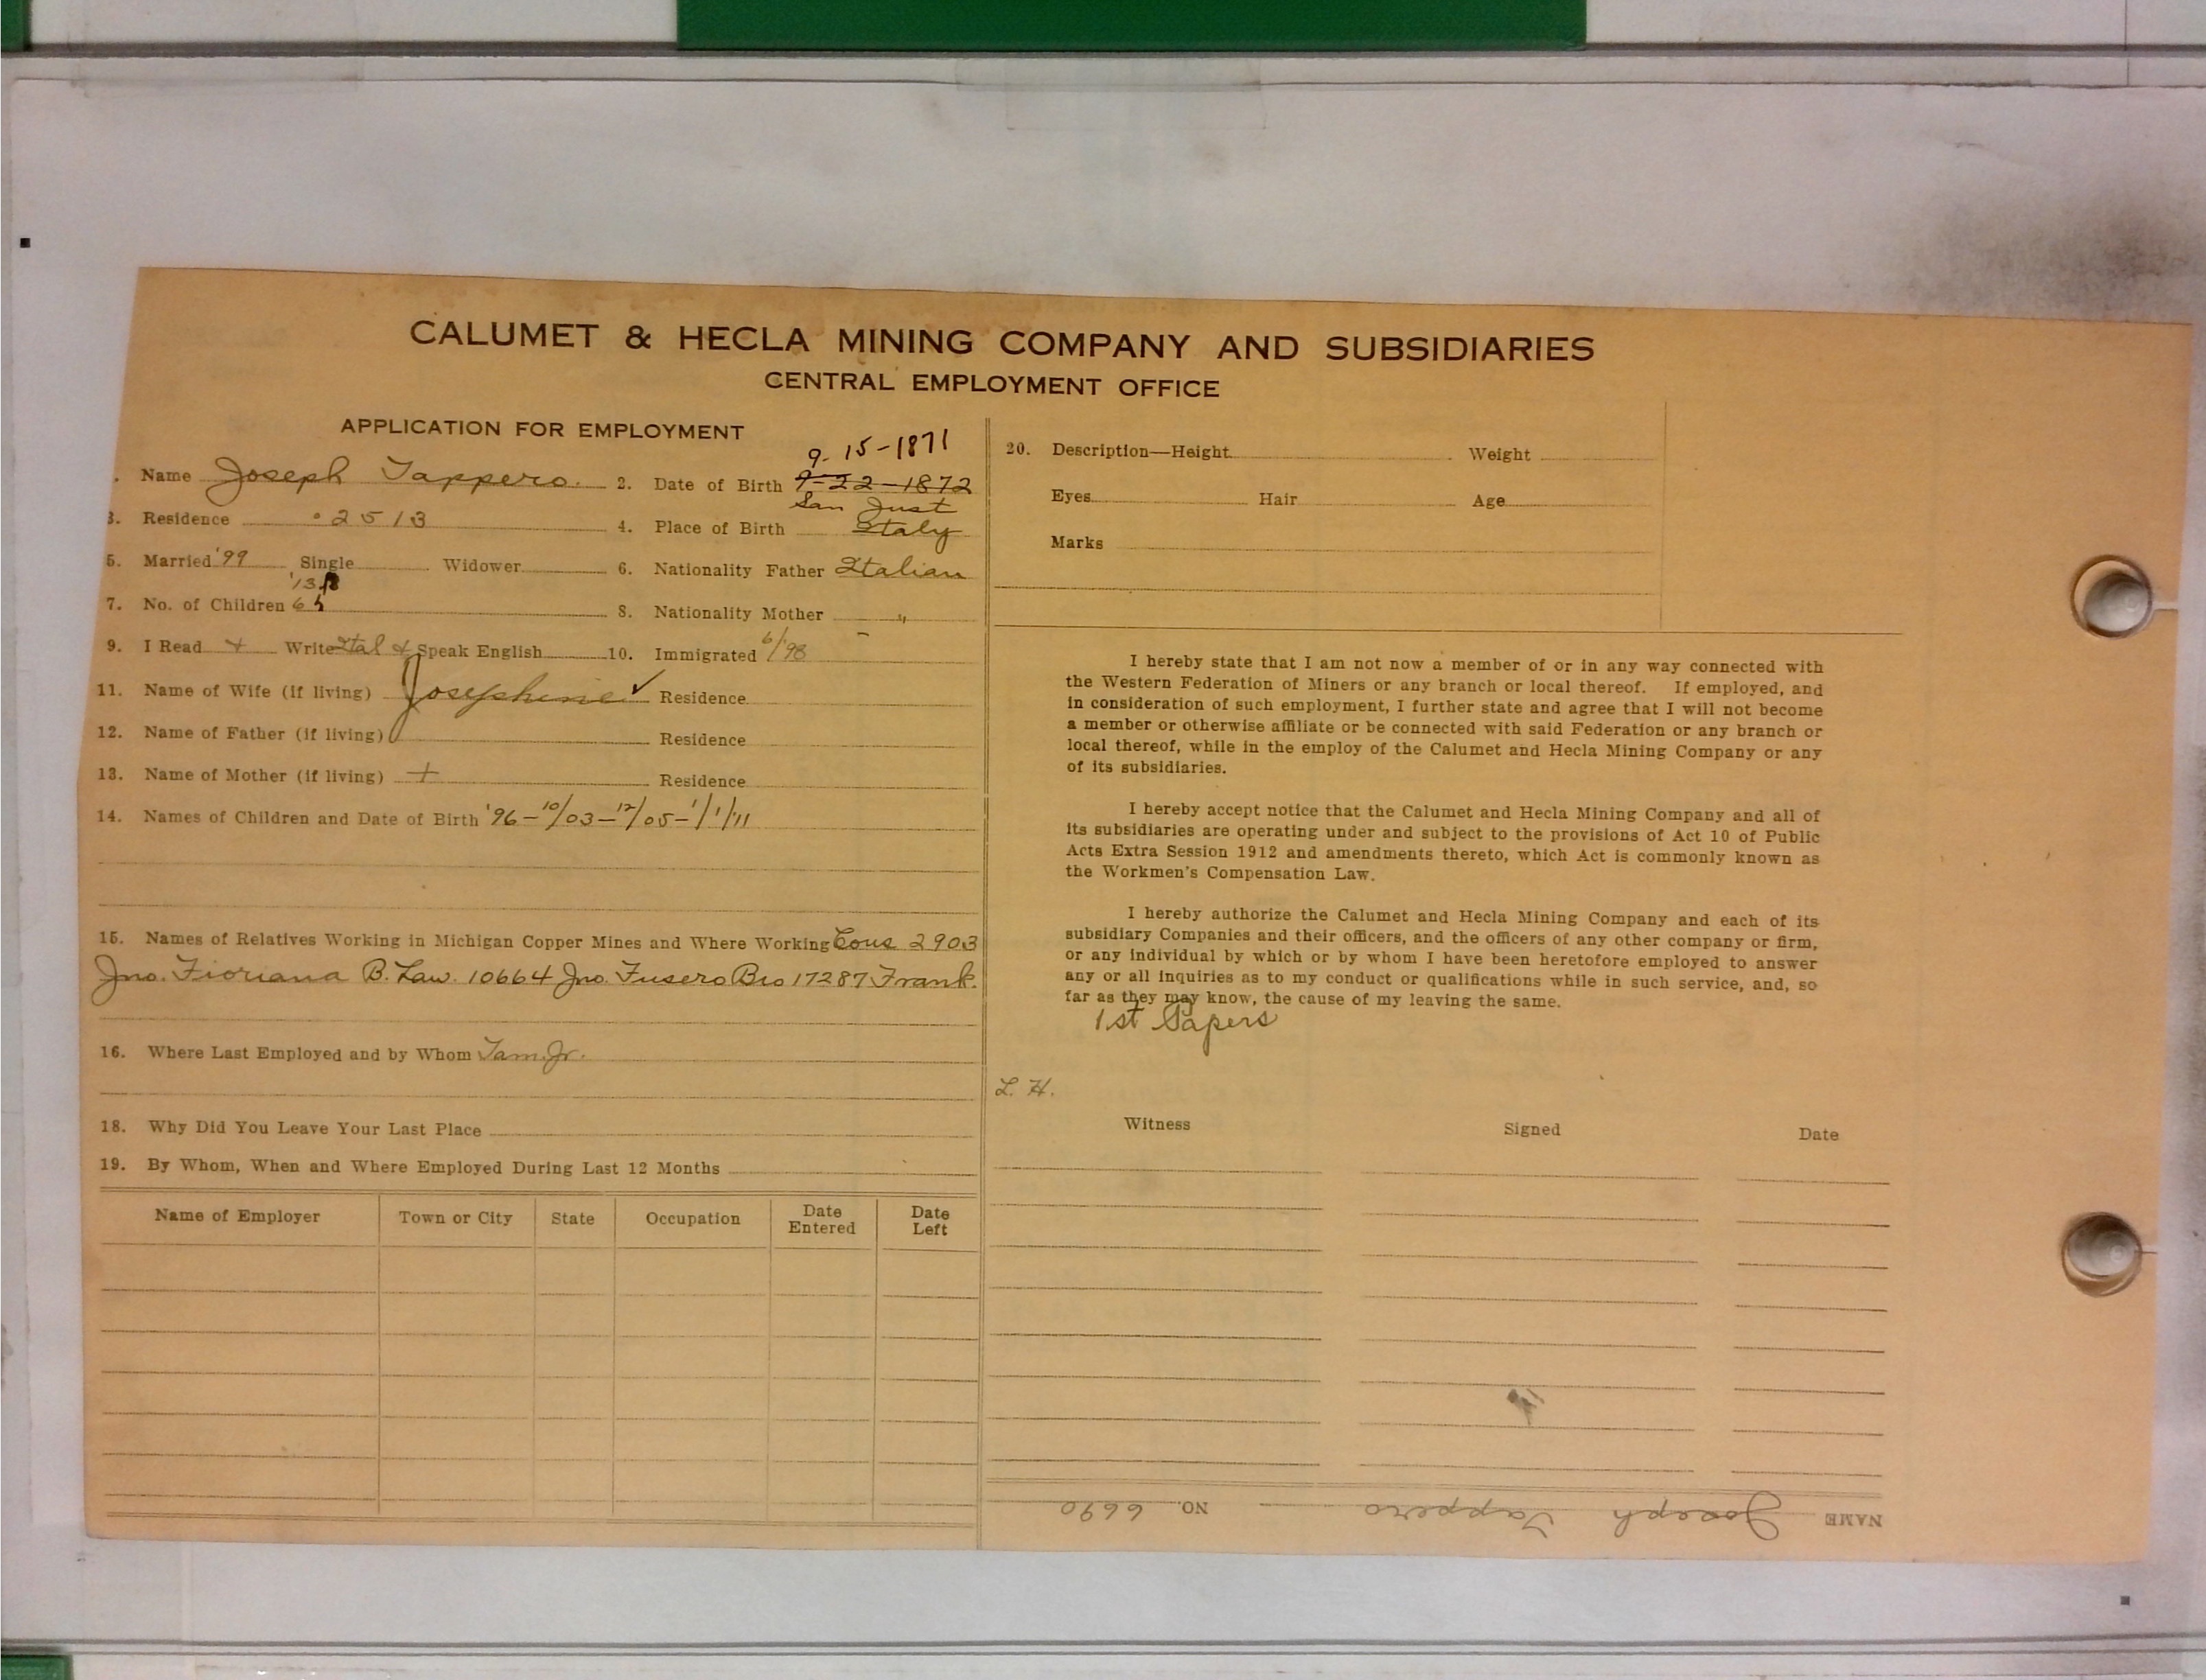 CALUMET & HECLA MINING COMPANY AND SUBSIDIARIES
CENTRAL EMPLOYMENT OFFICE
APPLICATION FOR EMPLOYMENT
9-15-1871
. Name Joseph Tappero. 2. Date of Birth 9-22-1872
San Just
3. Residence 2513 4. Place of Birth Italy
5. Married '99 Single Widower 6. Nationality Father Italian
'13
7. No. of Children 6 8. Nationality Mother "
9. I Read + Write Ital + Speak English 10. Immigrated 6/'98
11. Name of Wife (if living) Josephine ✓ Residence
12. Name of Father (if living) Residence
13. Name of Mother (if living) + Residence
14. Names of Children and Date of Birth '96-10/03-12/05-1/1/11
15. Names of Relatives Working in Michigan Copper Mines and Where Working Cous 2903
Jno. Fioriana B. Law. 10664 Jno. Fusero Bro 17287 Frank.
16. Where Last Employed and by Whom Tam. Jr.
18. Why Did You Leave Your Last Place
19. By Whom, When and Where Employed During Last 12 Months
Name of Employer Town or City State Occupation Date Entered Date Left
20. Description—Height Weight
Eyes Hair Age
Marks
I hereby state that I am not now a member of or in any way connected with
the Western Federation of Miners or any branch or local thereof. If employed, and
in consideration of such employment, I further state and agree that I will not become
a member or otherwise affiliate or be connected with said Federation or any branch or
local thereof, while in the employ of the Calumet and Hecla Mining Company or any
of its subsidiaries.
I hereby accept notice that the Calumet and Hecla Mining Company and all of
its subsidiaries are operating under and subject to the provisions of Act 10 of Public
Acts Extra Session 1912 and amendments thereto, which Act is commonly known as
the Workmen's Compensation Law.
I hereby authorize the Calumet and Hecla Mining Company and each of its
subsidiary Companies and their officers, and the officers of any other company or firm,
or any individual by which or by whom I have been heretofore employed to answer
any or all inquiries as to my conduct or qualifications while in such service, and, so
far as they may know, the cause of my leaving the same.
1st Papers
L. H.
Witness Signed Date
NAME Joseph Tappero NO. 6690